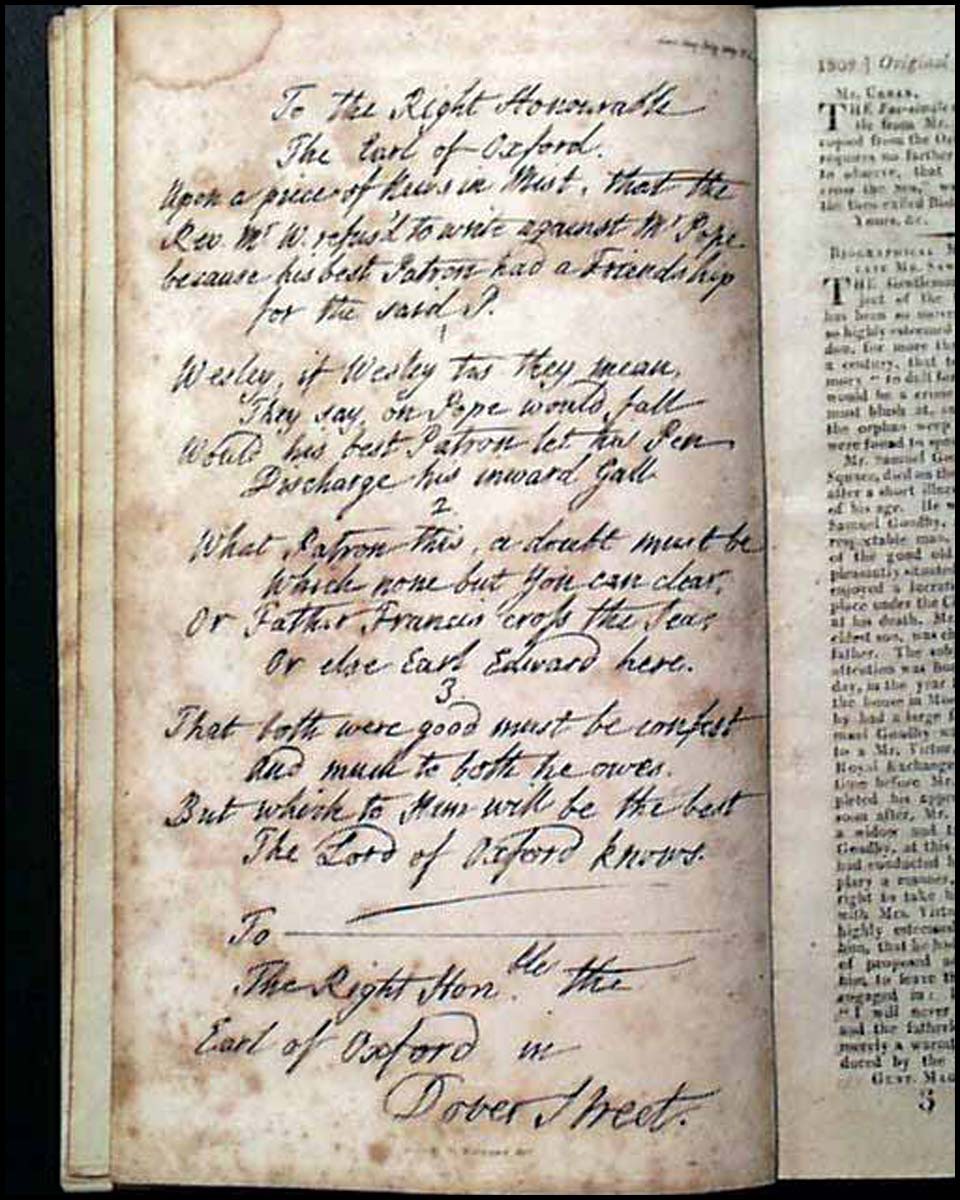 To the Right Honourable
The Earl of Oxford.
Upon a piece of News in Mist, that the
Rev. Mr W. refus'd to write against Mr Pope
because his best Patron had a Friendship
for the said P.
1
Wesley, if Wesley tis they mean,
They say, on Pope would fall
Would his best Patron let his Pen
Discharge his inward Gall
2
What Patron this, a doubt must be
Which none but You can clear,
Or Father Francis cross the Sea,
Or else Earl Edward here.
3.
That both were good must be confest
And much to both he owes.
But which to Him will be the best
The Lord of Oxford knows.
To
The Right Honble the
Earl of Oxford in
Dover Street.
1809] Original
Mr. Urban,
THE Fac-simile
tle from Mr.
copied from the Ox
requires no farther
to observe, that
cross the Sea," w
the then exiled Bish
Yours, &c.
Biographical M
late Mr. Sam
THE Gentleman
ject of the
has been so
so highly esteemed
don, for more tha
a century, that t
mory "to dull for
would be a crime
must blush at, an
the orphan weep
were found to
Mr. Samuel Goo
Square, died on the
after a short illne
of his age. He w
Samuel Goodby,
respectable man,
of the good old
pleasantly situated
enjoyed a lucrati
place under the C
at his death. M
eldest son, was
father. The
attention was
day, in the year
the house in
by had a large f
man! Goodby w
to a Mr. Virtue
Royal Exchange
time before Mr.
pleted his appre
soon after, Mr.
a widow and
Goadby, at this
had conducted
plary a manner,
right to take
with Mrs. Virtu
highly esteemed
him, that he had
of proposed
him, to leave th
engaged in:
"I will never
and the fatherl
merely a warm
duced by the
Gent. Mag
5